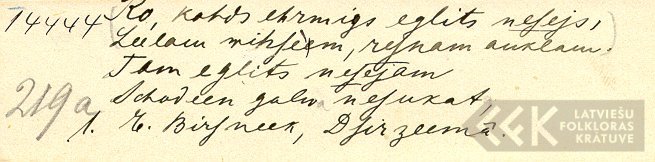 14444 Ko, kahds ehrmigs eglits nesejs,
Leelam wihseem, resnam auklam.
Tam eglits nesejam
Schodeen galwa nesukat,
219a
1. E. Birsneek, Dsirzeemā.
LFK
LATVIEŠU
FOLKLORAS
KRĀTUVE